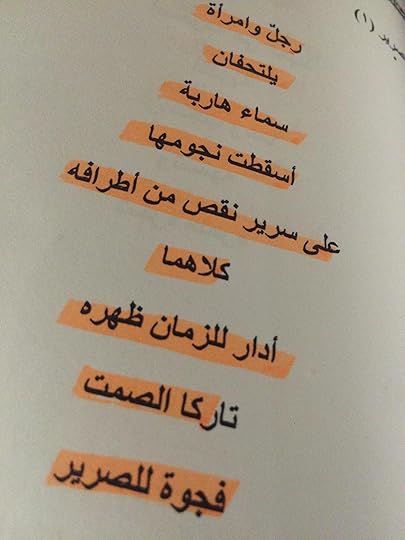 صرير (١)
رجلٌ وامرأة
يلتحفان
سماء هاربة
أسقطت نجومها
على سرير نقص من أطرافه
كلاهما
أدار للزمان ظهره
تاركا الصمت
فجوة للصرير